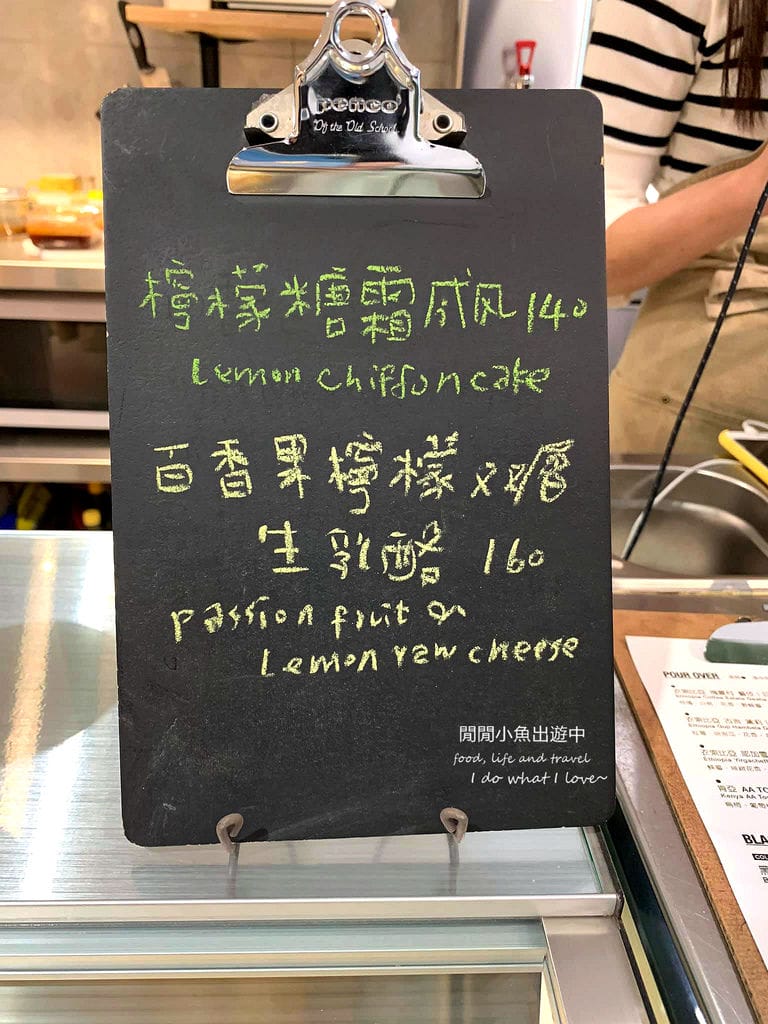 penco
Of the Old School
檸檬糖霜戚风 140
Lemon chiffon cake
百香果檸檬双層
生乳酪 160
passion fruit &
Lemon raw cheese
閒閒小魚出遊中
food, life and travel
I do what I love~
POUR OVER
衣索比亞
衣索比亞
衣索比亞
Ethiopia
肯亞 AA TO
Kenya AA To
BLA